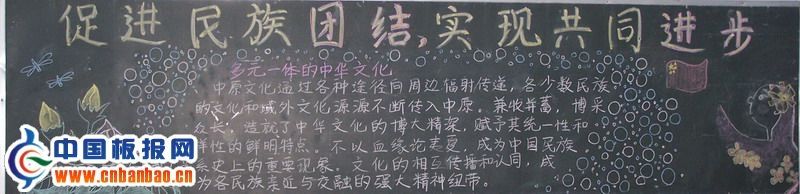 促进民族团结，实现共同进步
多元一体的中华文化
中原文化通过各种途径向周边辐射传递，各少数民族
的文化和域外文化源源不断传入中原。兼收并蓄，博采
众长，造就了中华文化的博大精深，赋予其统一性和
样性的鲜明特点，不以血缘论英夏，成为中国民族
系史上的重要现象。文化的相互传播和认同，成
为各民族亲近与交融的强大精神纽带。
中国板报网
www.cnbanbao.cn